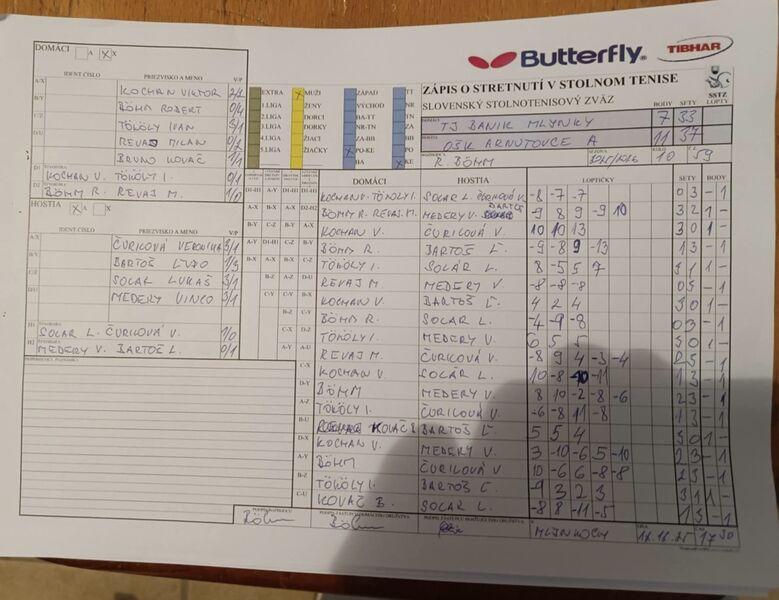 DOMÁCI A X
IDENT. ČÍSLO PRIEZVISKO A MENO V/P
A/X KOCHAN VIKTOR 2/4
B/Y BÖHM ROBERT 0/4
C/Z TÖKÖLY IVAN 3/1
D/U REVAJ MILAN 0/2
BRUNO KOVÁČ 1/1
D1 KOCHAN V. TÖKÖLY I. 0/1
D2 BÖHM R. REVAJ M. 1/0
HOSTIA A X
IDENT. ČÍSLO PRIEZVISKO A MENO V/P
A/X ČURILOVÁ VERONIKA 3/1
B/Y BARTOŠ ĽUDO 1/3
C/Z SOLAR LUKÁŠ 3/1
D/U MEDERY VINCO 3/1
H1 SOLAR L. ČURILOVÁ V. 1/0
H2 MEDERY V. BARTOŠ L. 0/1
Butterfly
TIBHAR
ZÁPIS O STRETNUTÍ V STOLNOM TENISE
SLOVENSKÝ STOLNOTENISOVÝ ZVÄZ
SSTZ
EXTRA MUŽI ZÁPAD TT
1.LIGA ŽENY VÝCHOD NR
2.LIGA DORCI BA-TT TN
3.LIGA DORKY NR-TN ZA
4.LIGA ŽIACI ZA-BB BB
5.LIGA ŽIAČKY PO-KE PO
BA KE
BODY SETY LOPTY
TJ BANÍK MLYNKY 7 33
OŠK ARNUTOVCE A 11 37
R. BÖHM 2025/2026 10 59
DOMÁCI HOSTIA LOPTIČKY SETY BODY
KOCHAN V. TÖKÖLY I. SOLAR L. ČURILOVÁ V. -8 -7 -7 0 3 - 1
BÖHM R. REVAJ M. MEDERY V. BARTOŠ -9 8 9 -9 10 3 2 1 -
KOCHAN V. ČURILOVÁ V. 10 10 13 3 0 1 -
BÖHM R. BARTOŠ Ľ. -9 -8 9 -13 1 3 - 1
TÖKÖLY I. SOLÁR L. 8 -5 5 7 3 1 1 -
REVAJ M. MEDERY V. -8 -8 -8 0 3 - 1
KOCHAN V. BARTOŠ Ľ. 4 2 4 3 0 1 -
BÖHM R. SOLAR L. -4 -9 -8 0 3 - 1
TÖKÖLY I. MEDERY V. 6 5 5 3 0 1 -
REVAJ M. ČURILOVÁ V. -8 9 4 -3 -4 2 3 - 1
KOCHAN V. SOLÁR L. 10 -8 -10 -11 1 3 - 1
BÖHM MEDERY V. 8 10 -2 -8 -6 2 3 - 1
TÖKÖLY I. ČURILOVÁ V. -6 -8 11 -8 1 3 - 1
KOVÁČ B BARTOŠ Ľ. 5 5 4 3 0 1 -
KOCHAN V. MEDERY V. 3 -10 -6 5 -10 2 3 - 1
BÖHM ČURILOVÁ V 10 -6 6 -8 -8 2 3 - 1
TÖKÖLY I. BARTOŠ Ľ. -9 3 2 3 3 1 1 -
KOVÁČ B. SOLAR L. -8 8 -11 -5 1 3 - 1
Böhm Böhm MLYNKY 17 30